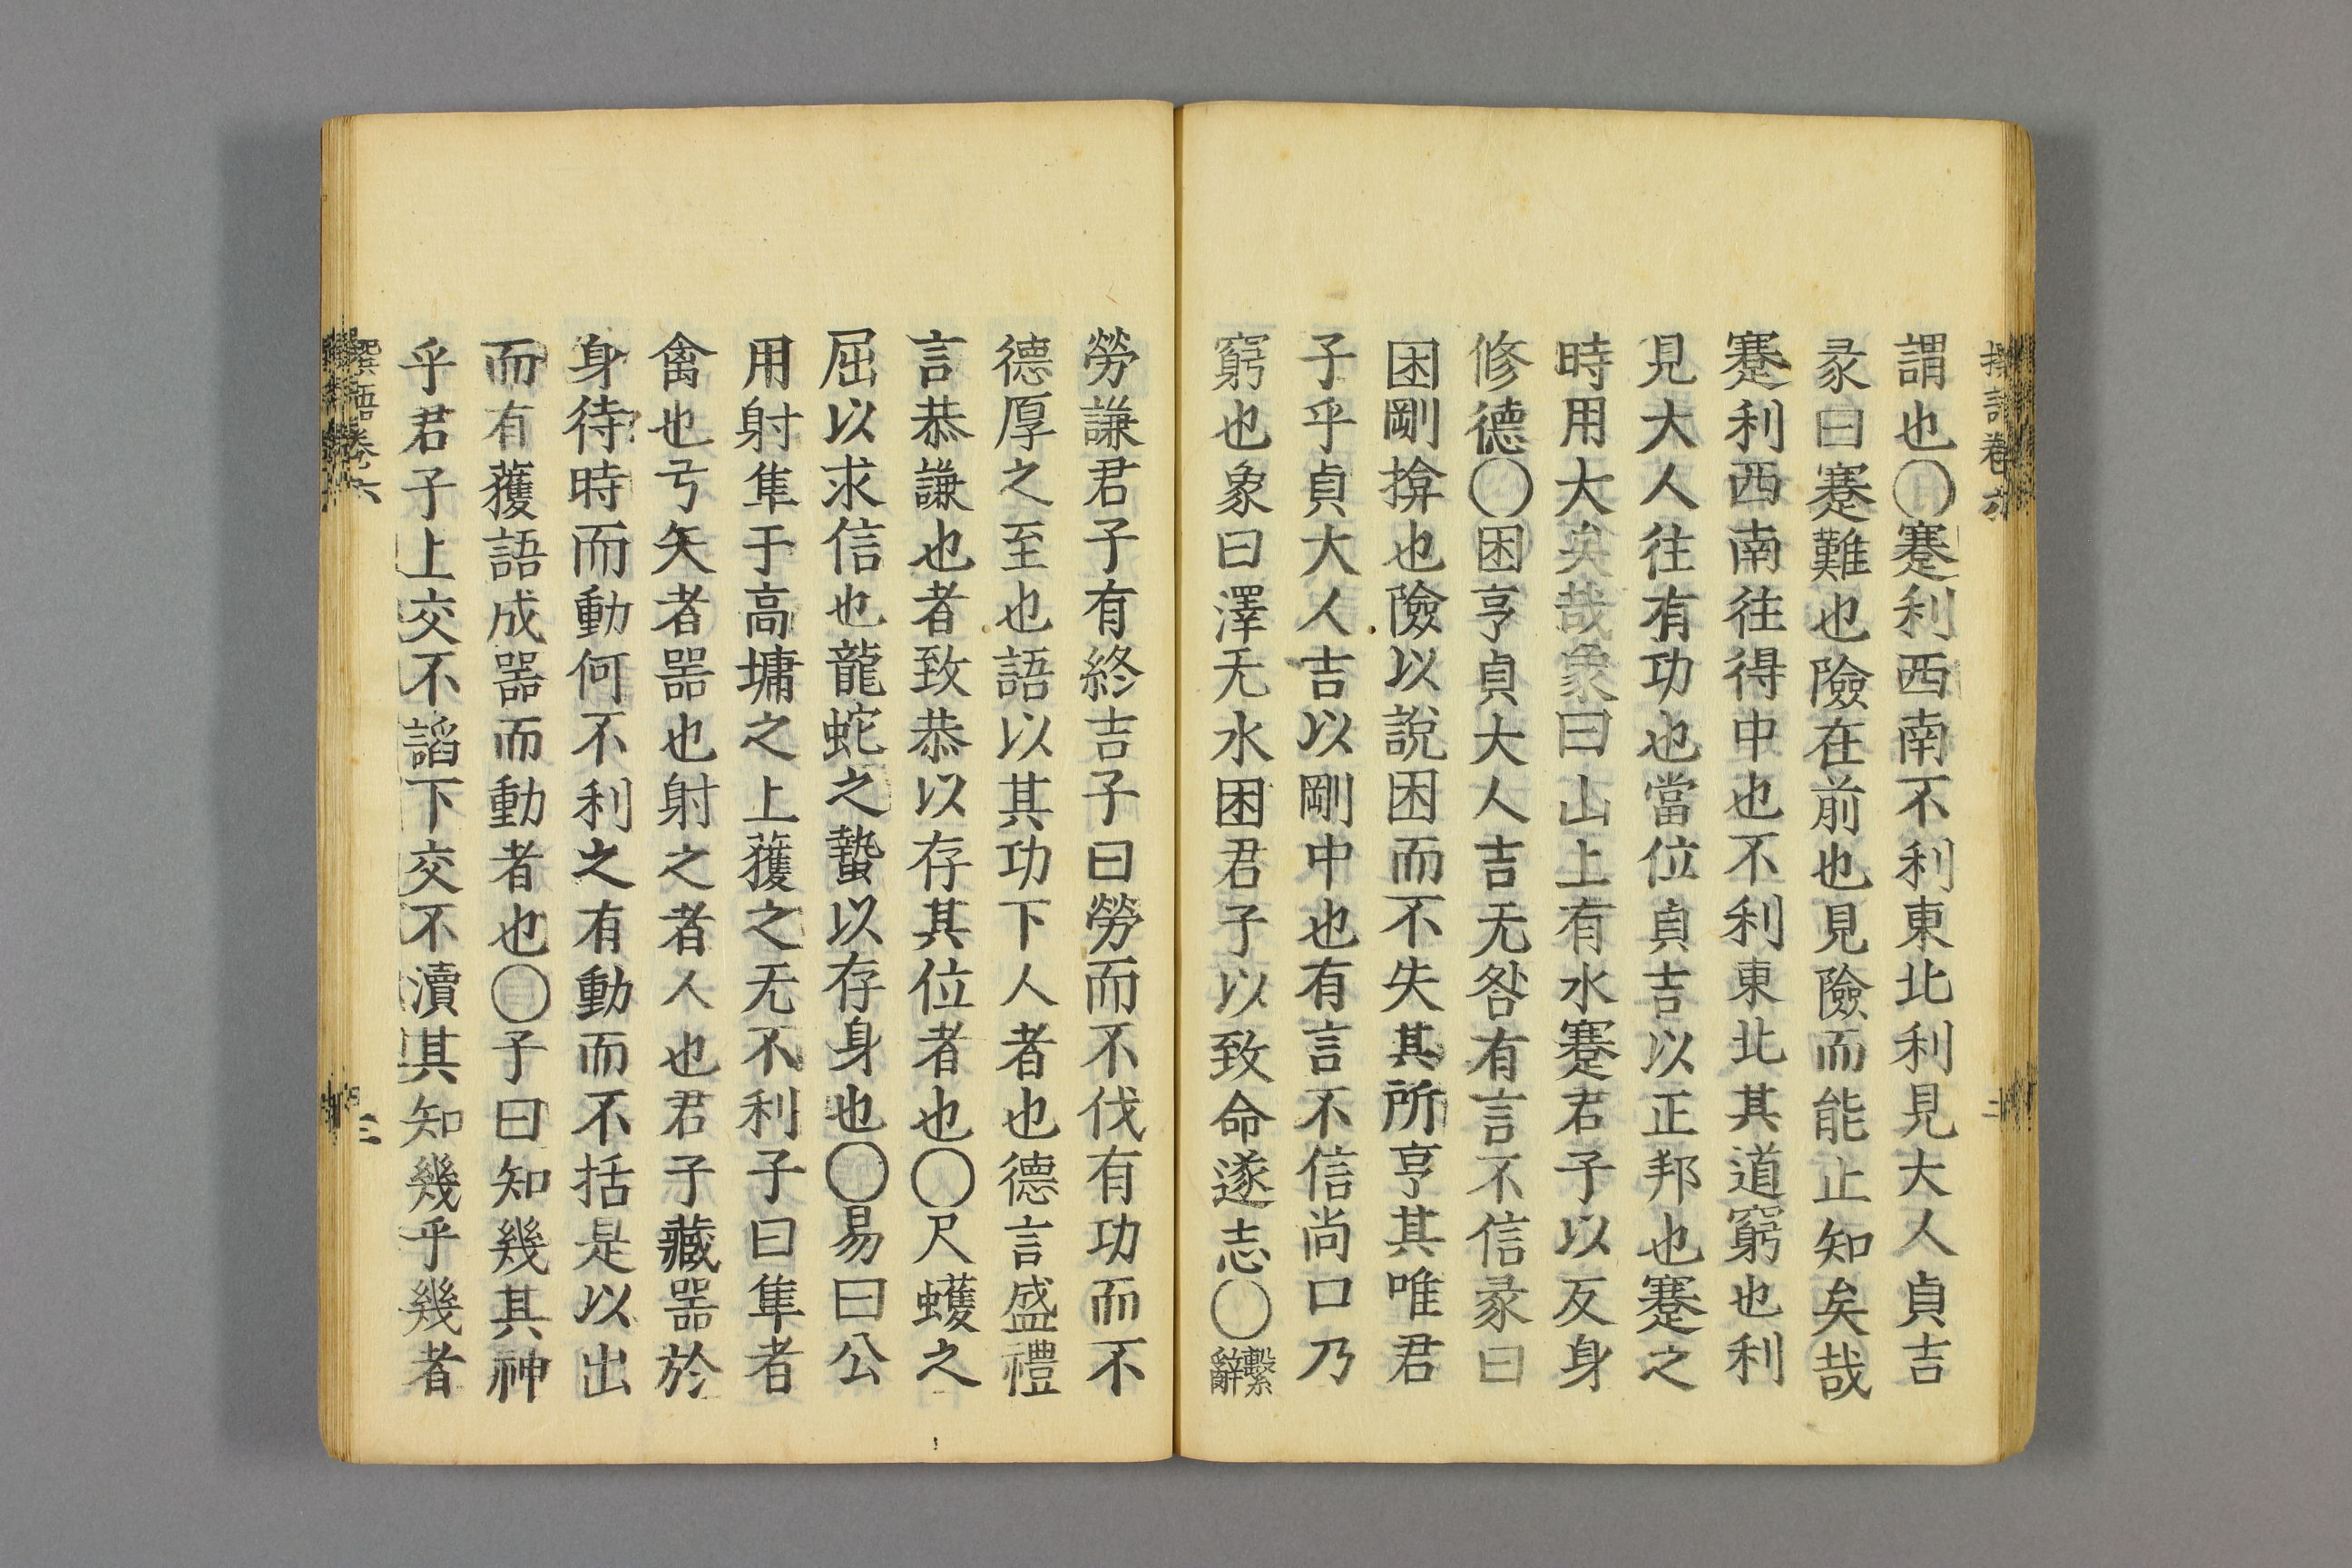 謂也○蹇利西南不利東北利見大人貞吉
彖曰蹇難也險在前也見險而能止知矣哉
蹇利西南往得中也不利東北其道窮也利
見大人往有功也當位貞吉以正邦也蹇之
時用大矣哉象曰山上有水蹇君子以反身
修德○困亨貞大人吉无咎有言不信彖曰
困剛揜也險以說困而不失其所亨其唯君
子乎貞大人吉以剛中也有言不信尚口乃
窮也象曰澤无水困君子以致命遂志○繫辭
勞謙君子有終吉子曰勞而不伐有功而不
德厚之至也語以其功下人者也德言盛禮
言恭謙也者致恭以存其位者也○尺蠖之
屈以求信也龍蛇之蟄以存身也○易曰公
用射隼于高墉之上獲之无不利子曰隼者
禽也弓矢者噐也射之者人也君子藏噐於
身待時而動何不利之有動而不括是以出
而有獲語成噐而動者也○子曰知幾其神
乎君子上交不諂下交不瀆其知幾乎幾者
卷六
三